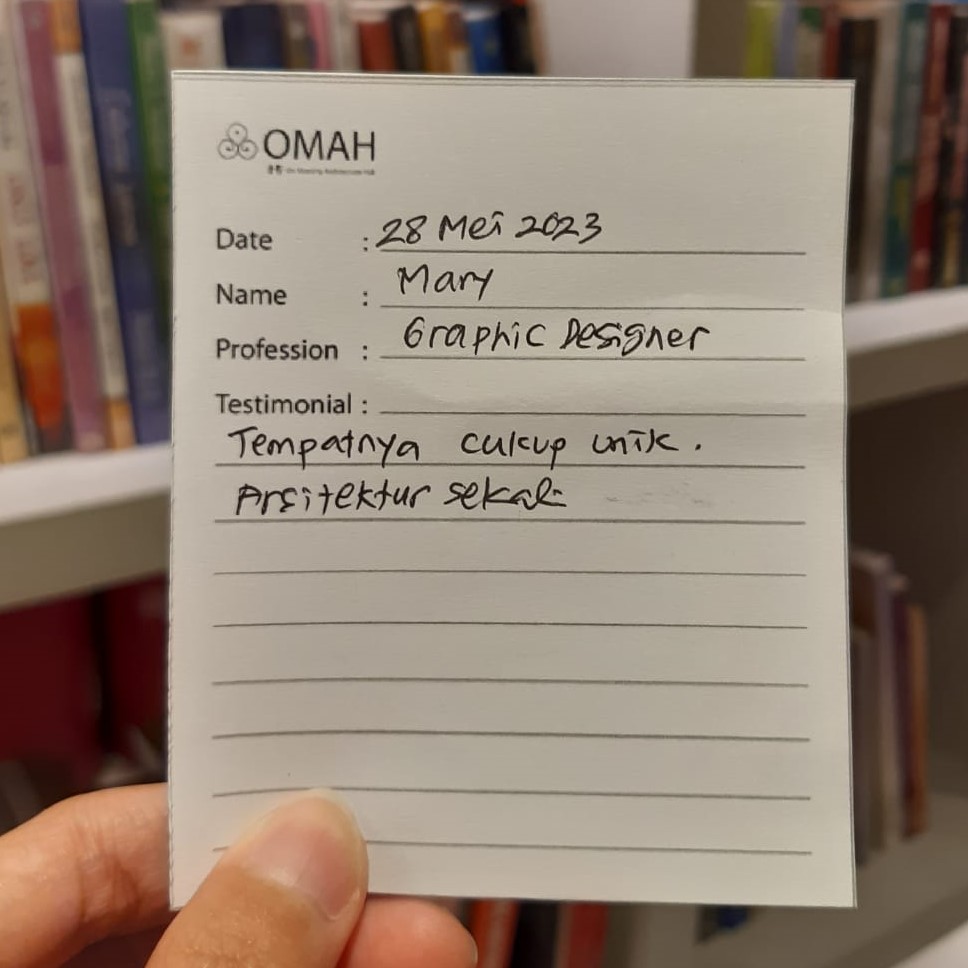 OMAH
Date : 28 Mei 2023
Name : Mary
Profession : Graphic Designer
Testimonial :
Tempatnya cukup unik.
Arsitektur sekali